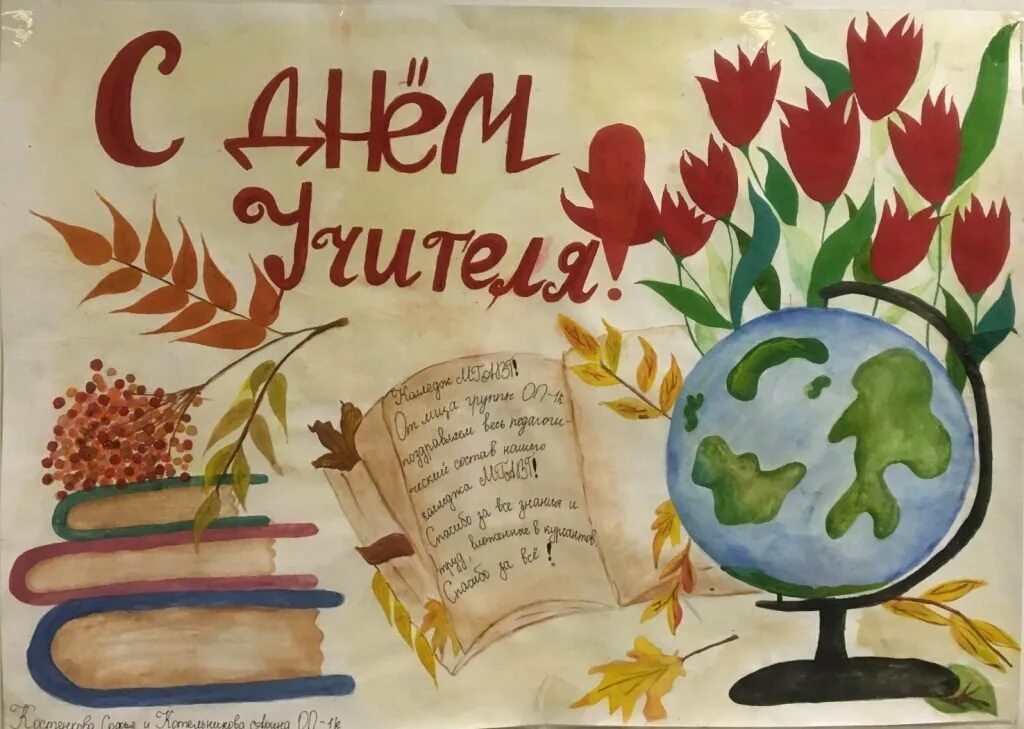 С ДНЁМ
Учителя!
Колледж МГАВТ!
От лица группы ОП-1к
поздравляем весь педагоги-
ческий состав нашего
колледжа МГАВТ!
Спасибо за все знания и
труд, вложенные в курсантов
Спасибо за всё!
Костенкова Софья и Котельникова Арина ОП-1к